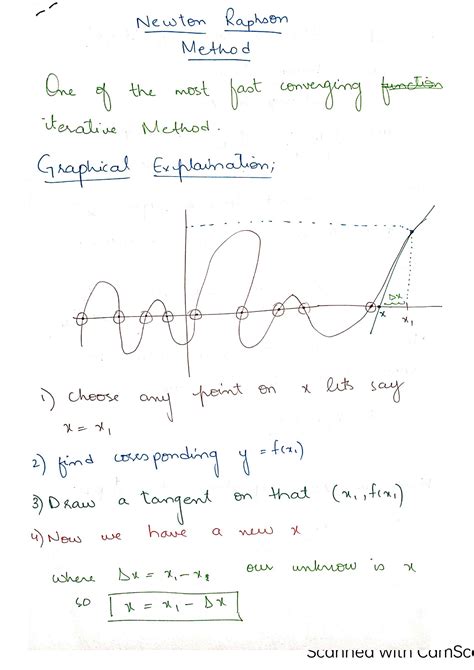 Newton Raphson
Method
One of the most fast converging function
iterative Method.
Graphical Explaination;
Δx
x
x₁
1) Choose any point on x lets say
x = x₁
2) find corresponding y = f(x₁)
3) Draw a tangent on that (x₁, f(x₁)
4) Now we have a new x
where Δx = x₁ - x₂ our unknow is x
so x = x₁ - Δx
Scanned with CamSc